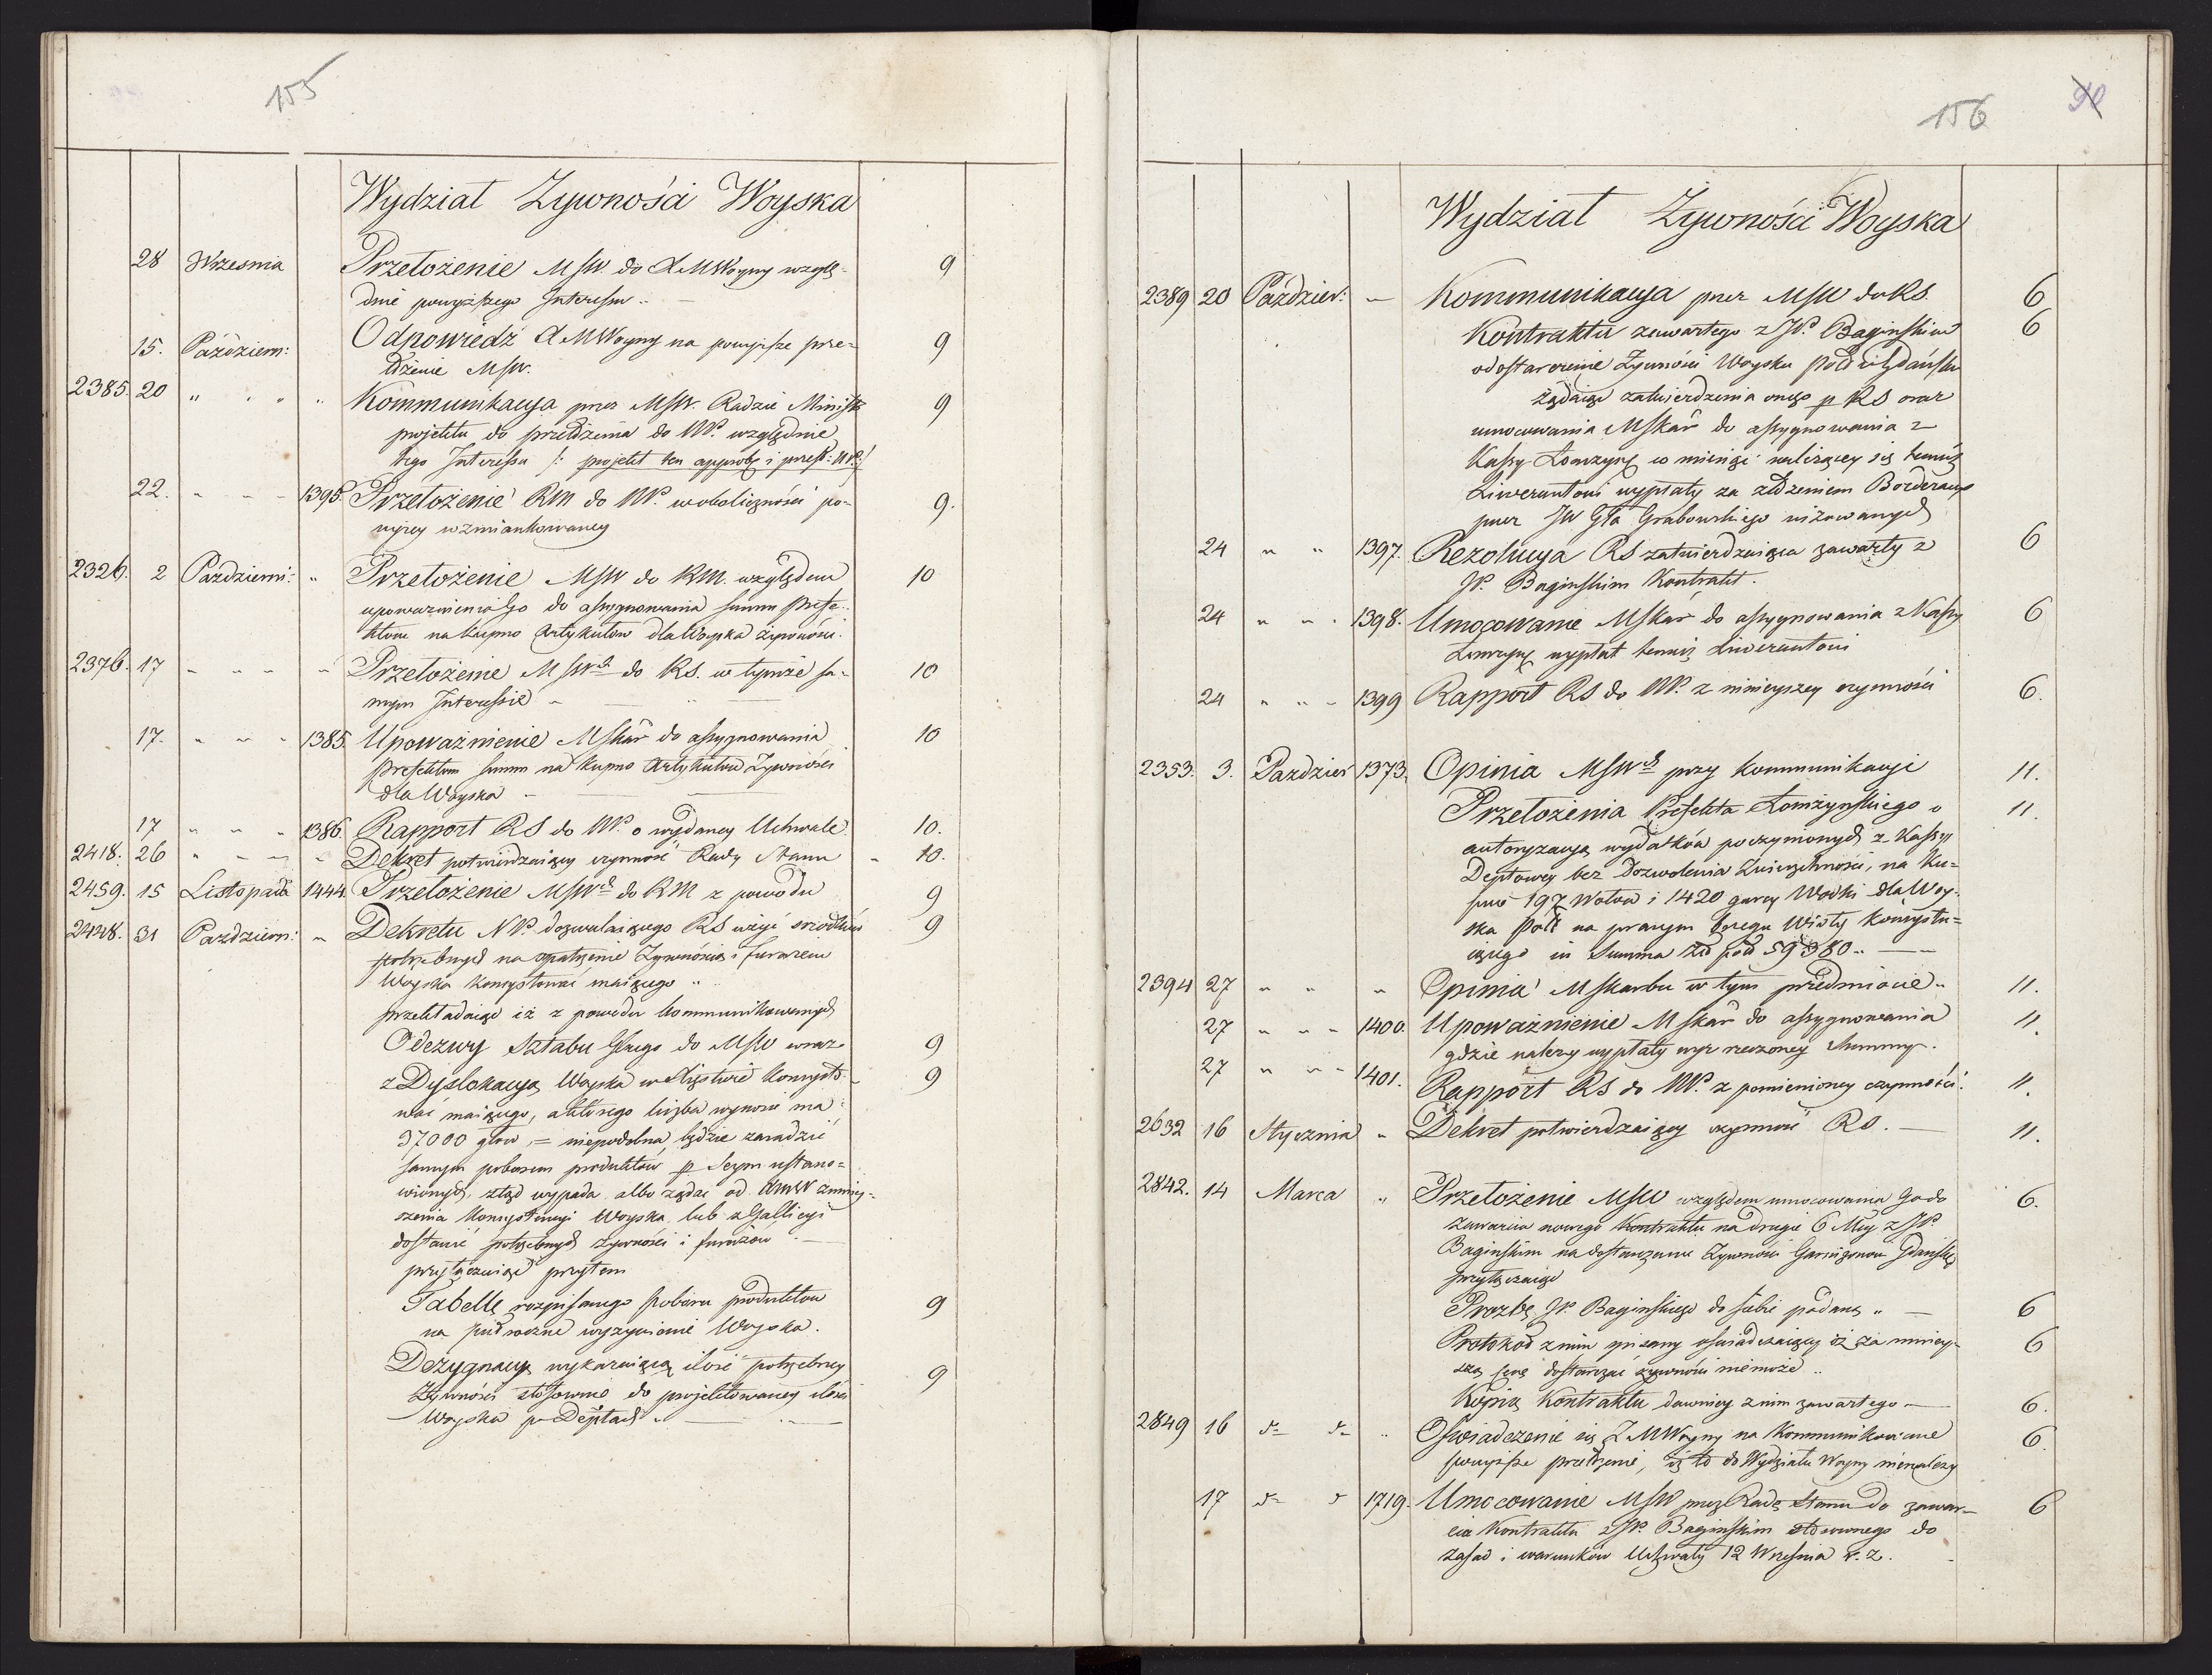 155
Wydział Zywności Woyska
28 Września Przełożenie MSW do AMWoyny wzglę-
dnie powyższego Interessu ..
15. Paździem: Odpowiedź AMWoyny na powyższe prze-
łdżenie MSW.
2385. 20 " " " " Kommunikacya przez MSW. Radzie Minist:
projektu do przełdżenia do NP. względnie
tego Interessu /: projekt ten approb: i przesł: NP:/
22. " " " 1395. Przełożenie RM do NP. w okoliczności po-
wyżey wzmiankowaney
2326. 2 Pazdziern: " Przełożenie MSW do RM. względem
upoważnienia Go do assygnowania summ Prefe-
ktom na kupno Artykułów dla Woyska żywności.
2376. 17 " " " " Przełożenie MSWch do RS. w tymże sa-
mym Interessie "
17. " " " 1385. Upoważnienie MSkar do assygnowania
Prefektom summ na kupno Artykułów Zywności
dla Woyska
17 " " " 1386. Rapport RS do NP. o wydaney Uchwale. 10.
2418. 26 " " " " Dekret potwierdzaiący czynność Rady Stanu 10.
2459. 15 Listopada 1444. Przełożenie MSWch do RM z powodu 9
2448. 31 Pazdziern: " Dekretu NP. dozwalaiącego RS użyć srodków 9
potrzebnych na opatrzenie Zywnością i furażem
Woyska konsystować maiącego "
przekładaiąc iż z powodu kommunikowanych
Odezwy Sztabu Głnego do MSW wraz 9
z Dyslokacyą Woyska w Xięstwie konsysto- 9
wać maiącego, a którego liczba wynosić ma
37000 głów, = niepodobna będzie zaradzić
samym poborem produktów p Seym ustano=
wionych, ztąd wypada albo żądać od AMW zmniey-
szenia konsystencyi Woyska, lub z Gallicyi
dostawić potrzebnych żywności i furażów
przyłączaiąc przytem
Tabellę rozpisanego poboru produktów 9
na półroczne wyżywienie Woyska.
Dezygnacyę wykazuiącą ilość potrzebney 9
Zywności stosownie do projektowaney ilości
Woyska po Deptach "
156
90
Wydział Zywności Woyska
2389 20 Paździer: " Kommunikacya przez MSW do RS. 6
Kontraktu zawartego z JP. Baginskim 6
o dostarczenie Zywności Woysku Pold. w Gdańsku
żądaiąc zatwierdzenia onego p RS oraz
umocowania MSkar do assygnowania z
Kassy Łomżyńs:
Liwerantowi wypłaty za złdżeniem Borderaux
przez JW Gła Grabowskiego wizowanych
24 " " 1397. Rezolucya RS zatwierdzaiąca zawarty z 6
JP. Baginskim Kontrakt.
24 " " " 1398. Umocowanie MSkar do assygnowania z Kassy 6
Łomżyńs: wypłat temuż Liwerantowi
24 " " " 1399 Rapport RS do NP. z ninieyszey czynności 6.
2353. 3. Pazdzier 1373. Opinia MSWch przy kommunikacyi 11.
Przełożenia Prefekta Łomżynskiego o 11.
autoryzacyą wydatków poczynionych z Kassy
Deptowey bez dozwolenia Zwierzchności, na ku-
pno 197 Wołów i 1420 garcy Wódki dla Woy-
ska Pold. na prawym brzegu Wisły konsystu=
iącego in Summa złd pold 59380 ..
2394 27 " " " Opinia MSkarbu w tym przedmiocie " 11.
27 " " " 1400. Upoważnienie MSkar do assygnowania 11.
gdzie należy wypłaty wyż rzeczoney Summy.
27 " " " 1401. Rapport RS do NP. z pomienioney czynności. 11.
2632 16 Stycznia " Dekret potwierdzaiący czynność RS. 11.
2842. 14 Marca " Przełożenie MSW względem umocowania Go do 6.
zawarcia nowego Kontraktu na drugie 6 Mcy z JP.
Baginskim na dostarczanie Zywności Garnizonowi Gdańske:
przyłączaiąc
Prozbę JP. Baginskiego do siebie podaną " 6
Protokoł z nim spisany oświadczaiący iż za mniey- 6
szą cenę dostarczać żywności niemoże ..
Kopią Kontraktu dawniey z nim zawartego 6.
2849 16 d= d= " Oświadczenie się ZMWoyny na kommunikowane 6.
powyższe przełdżenie, iż to do Wydziału Woyny nienależy
17 d= d 1719. Umocowanie MSW przez Radę Stanu do zawar- 6
cia Kontraktu z JP. Baginskim stosownego do
zasad i warunków Uchwały 12 Września r. z.